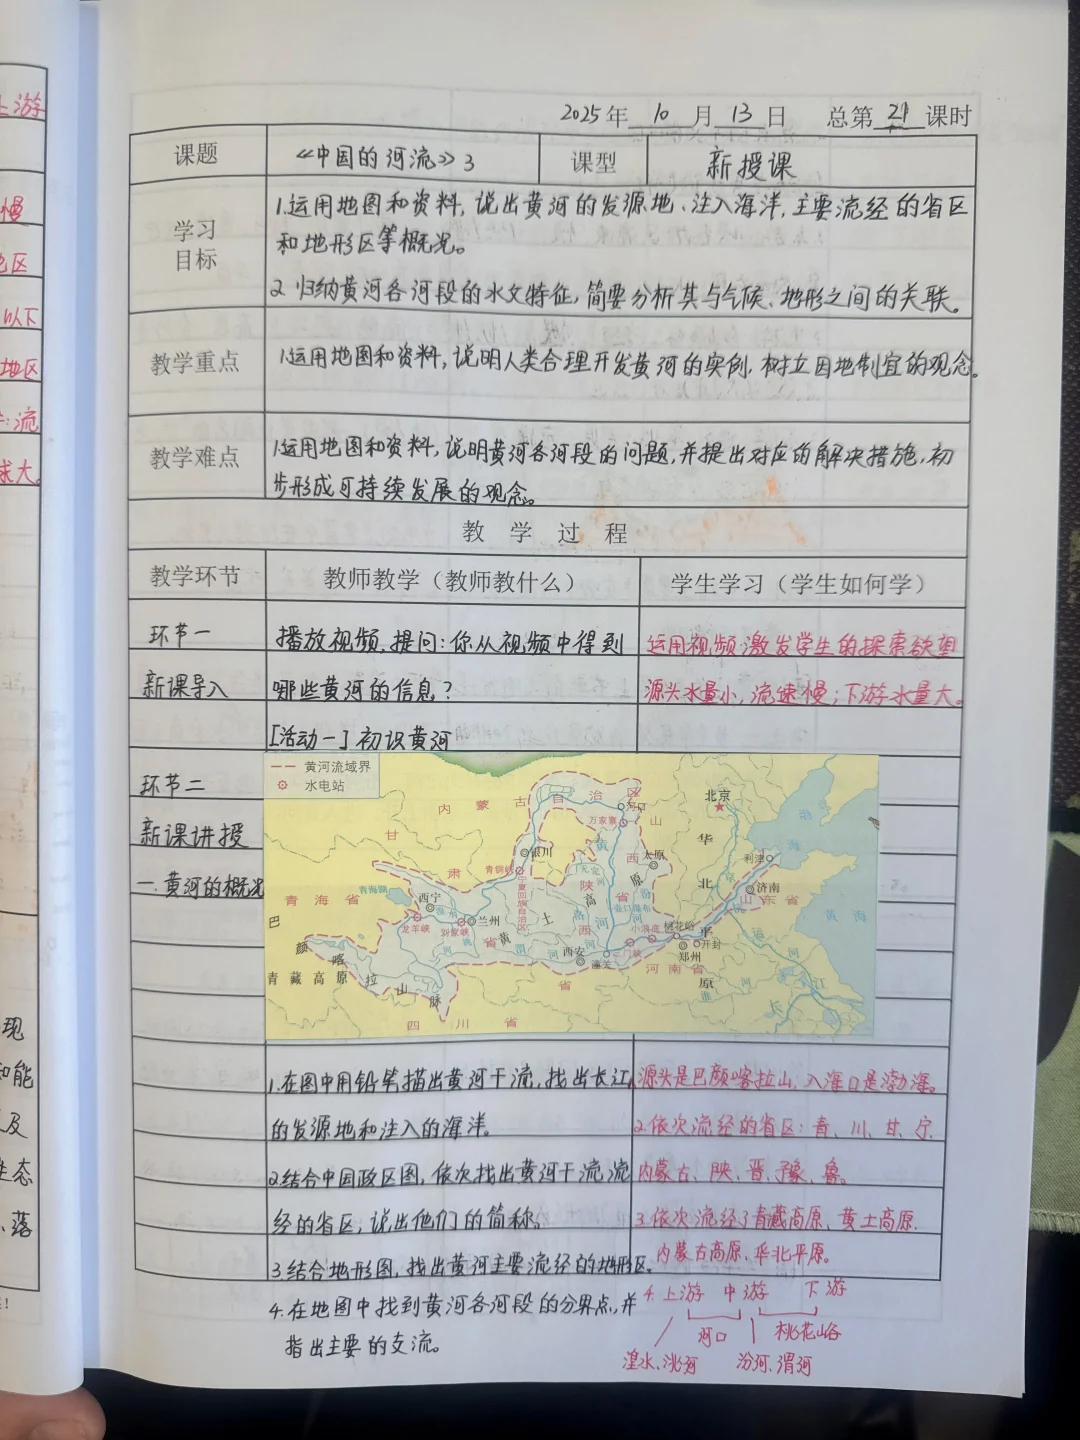 2025年 10 月 13 日 总第 21 课时
课题 《中国的河流》3 课型 新授课
学习目标
1.运用地图和资料,说出黄河的发源地、注入海洋,主要流经的省区
和地形区等概况。
2.归纳黄河各河段的水文特征,简要分析其与气候、地形之间的关联。
教学重点
1.运用地图和资料,说明人类合理开发黄河的实例,树立因地制宜的观念。
教学难点
1.运用地图和资料,说明黄河各河段的问题,并提出对应的解决措施,初
步形成可持续发展的观念。
教 学 过 程
教学环节 教师教学(教师教什么) 学生学习(学生如何学)
环节一 播放视频,提问:你从视频中得到 运用视频激发学生的探索欲望
新课导入 哪些黄河的信息? 源头水量小,流速慢;下游水量大。
[活动一]初识黄河
环节二
新课讲授
一.黄河的概况
黄河流域界
水电站
内蒙古自治区
河口
北京
渤海
甘肃省
万家寨
山西省
太原
华北平原
银川
青铜峡
宁夏回族自治区
利津
济南
山东省
黄海
青海省
青海湖
西宁
龙羊峡
刘家峡
兰州
陕西省
黄土高原
壶口瀑布
小浪底
桃花峪
开封
郑州
三门峡
潼关
西安
河南省
巴颜喀拉山脉
青藏高原
四川省
长江
1.在图中用铅笔描出黄河干流,找出长江 源头是巴颜喀拉山,入海口是渤海。
的发源地和注入的海洋。 2.依次流经的省区:青、川、甘、宁、
2.结合中国政区图,依次找出黄河干流流 内蒙古、陕、晋、豫、鲁。
经的省区,说出他们的简称。 3.依次流经了青藏高原、黄土高原、
3.结合地形图,找出黄河主要流经的地形区。 内蒙古高原、华北平原。
4.在地图中找到黄河各河段的分界点,并 4.上游 中游 下游
指出主要的支流。 河口 桃花峪
湟水、洮河 汾河、渭河
上游
慢
以下
地区
流
现
和能
及
生态
、落